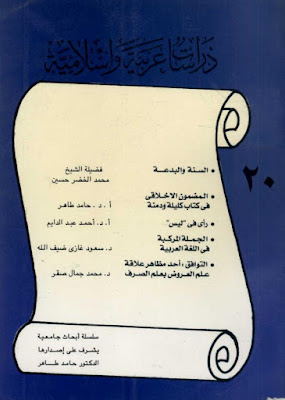 دراسات عربية وإسلامية
٢٠
• السنة والبدعة فضيلة الشيخ
محمد الخضر حسين
• المضمون الأخلاقى
فى كتاب كليلة ودمنة أ . د . حامد طاهر
• رأى فى "ليس" أ . د . أحمد عبد الدايم
• الجملة المركبة
فى اللغة العربية د . سعود غازى ضيف الله
• التوافق : أحد مظاهر علاقة
علم العروض بعلم الصرف د . محمد جمال صقر
سلسلة أبحاث جامعية
يشرف على إصدارها
الدكتور حامد طاهر